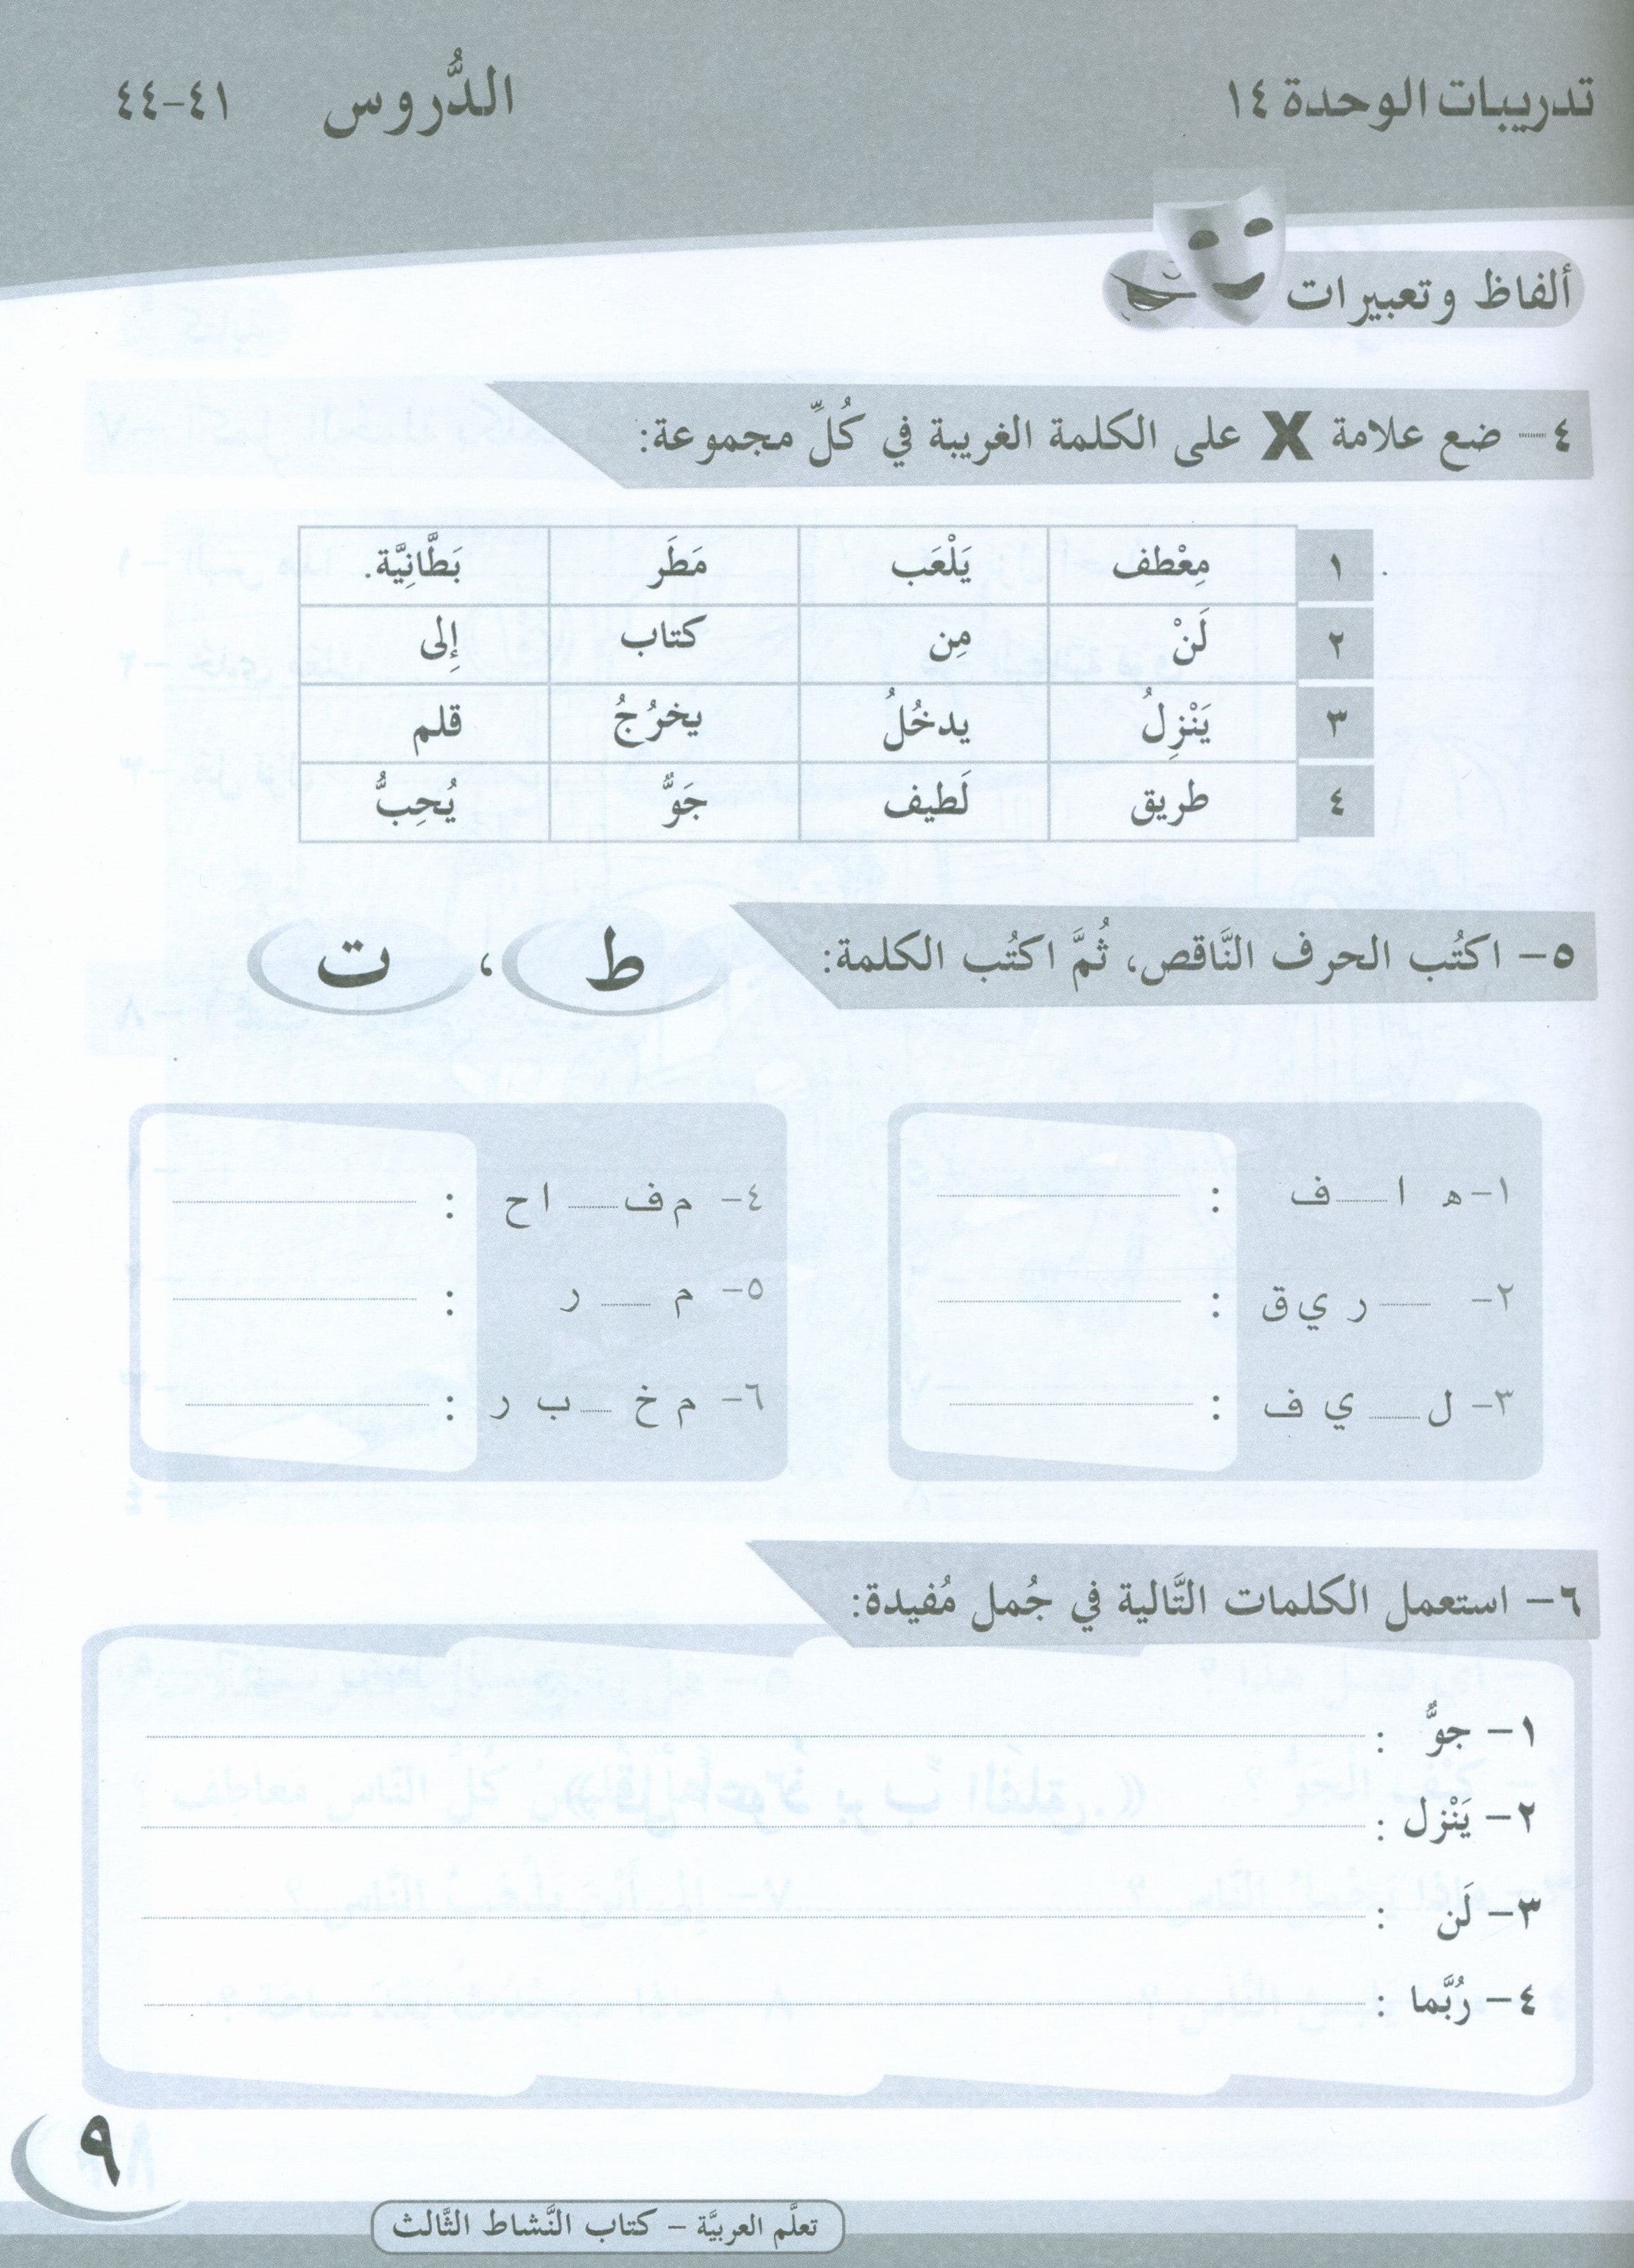 تدريبات الوحدة ١٤ الدُّروس ٤١-٤٤
ألفاظ وتعبيرات
٤- ضع علامة X على الكلمة الغريبة في كُلِّ مجموعة:
١ مِعْطف يَلْعَب مَطَر بَطَّانِيَّة.
٢ لَنْ مِن كتاب إِلى
٣ يَنْزِلُ يدخُلُ يخرُجُ قلم
٤ طريق لَطيف جَوٌّ يُحِبُّ
٥- اكتُب الحرف النَّاقص، ثُمَّ اكتُب الكلمة: ط ، ت
١- ه ا__ف :
٢- __ ر ي ق :
٣- ل__ي ف :
٤- م ف__ا ح :
٥- م __ ر :
٦- م خ __ ب ر :
٦- استعمل الكلمات التَّالية في جُمل مُفيدة:
١- جوٌّ :
٢- يَنْزل :
٣- لَن :
٤- رُبَّما :
٩
تعلَّم العربيَّة - كتاب النَّشاط الثَّالث